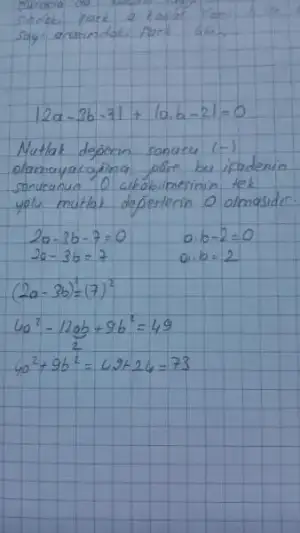 sayı arasındaki fark
|2a-3b-7| + |a.b-2|=0
Mutlak değerin sonucu (-)
olamayacağına göre bu ifadenin
sonucunun 0 çıkabilmesinin tek
yolu mutlak değerlerin 0 olmasıdır.
2a-3b-7=0 a.b-2=0
2a-3b=7 a.b=2
(2a-3b)²=(7)²
4a²-12ab+9b²=49
2
4a²+9b²=49+24=73